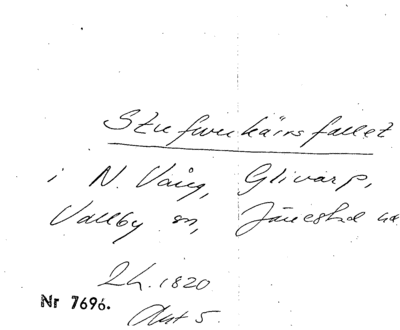 Stufwerkärrsfallet
i N. Vång, Glivarp,
Vallby sn, Järrestad hd
2 h. 1820
Nr 7696. Akt 5.